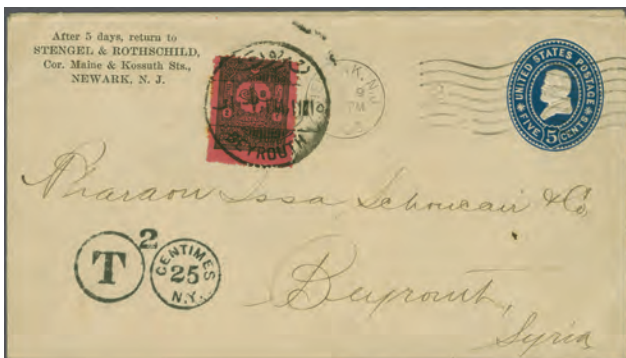 After 5 days, return to
STENGEL & ROTHSCHILD,
Cor. Maine & Kossuth Sts.,
NEWARK, N. J.
UNITED STATES POSTAGE
FIVE 5 CENTS
K, N.J
9
PM
BEYROUTH
Pharaon Issa Schoucair & Co
T
2
CENTIMES
25
N.Y.
Beyrout,
Syria